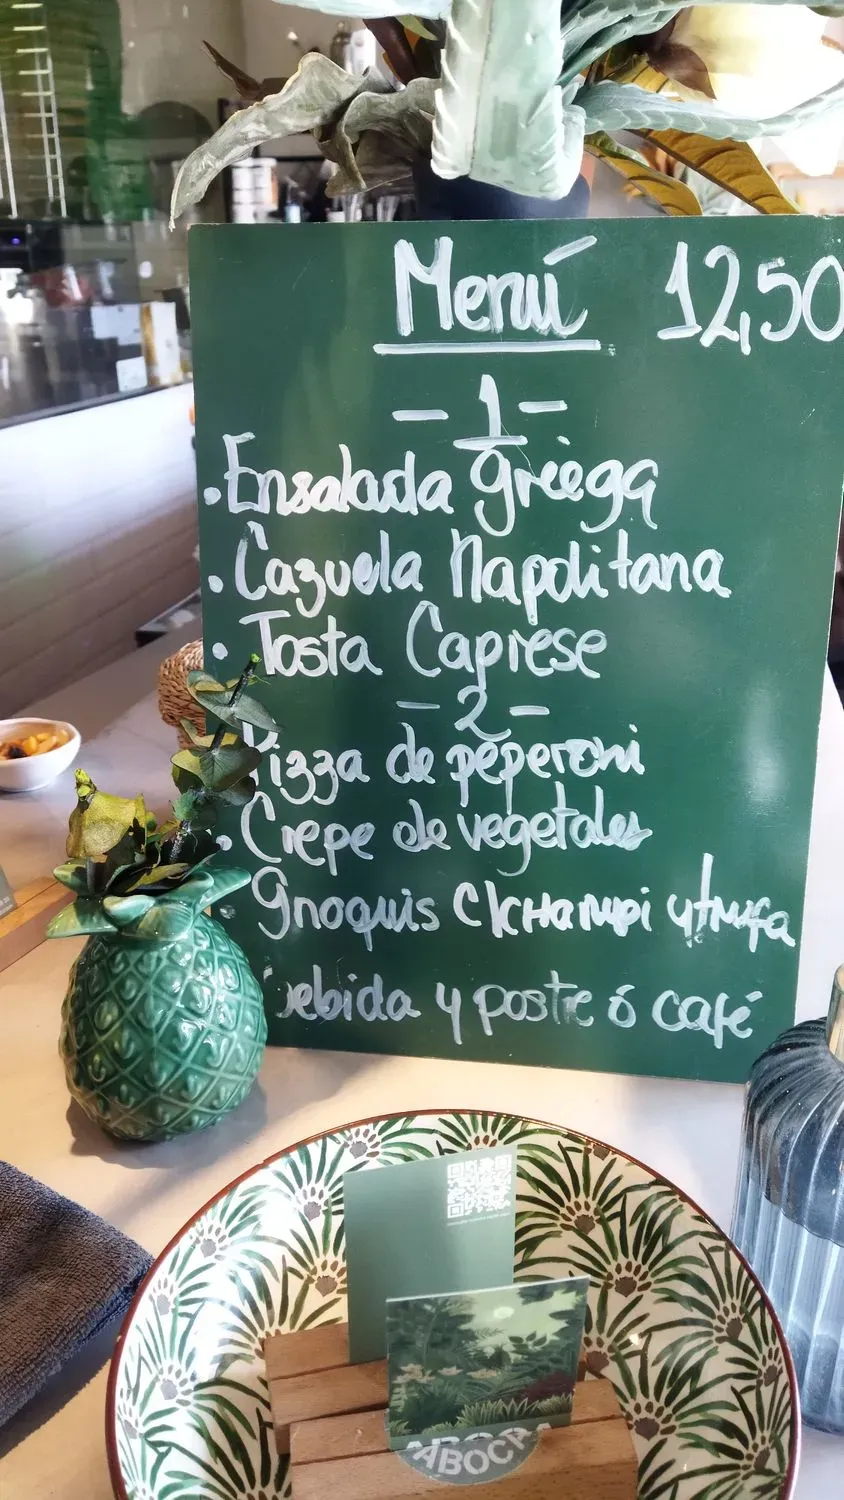 Menú 12,50
- 1 -
. Ensalada griega
. Cazuela Napolitana
. Tosta Caprese
- 2 -
Pizza de peperoni
. Crepe de vegetales
. Gnoquis c/champi y trufa
Bebida y postre ó café
ABOCA